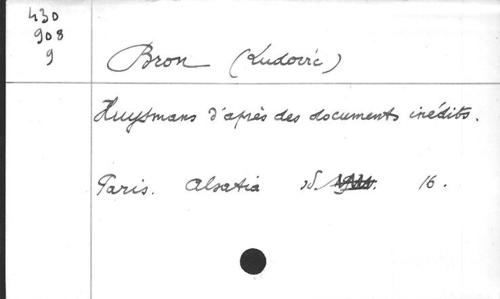 430
908
9
Bron (Ludovic)
Huysmans d'après des documents inédits.
Paris. Alsatia sd. 16.